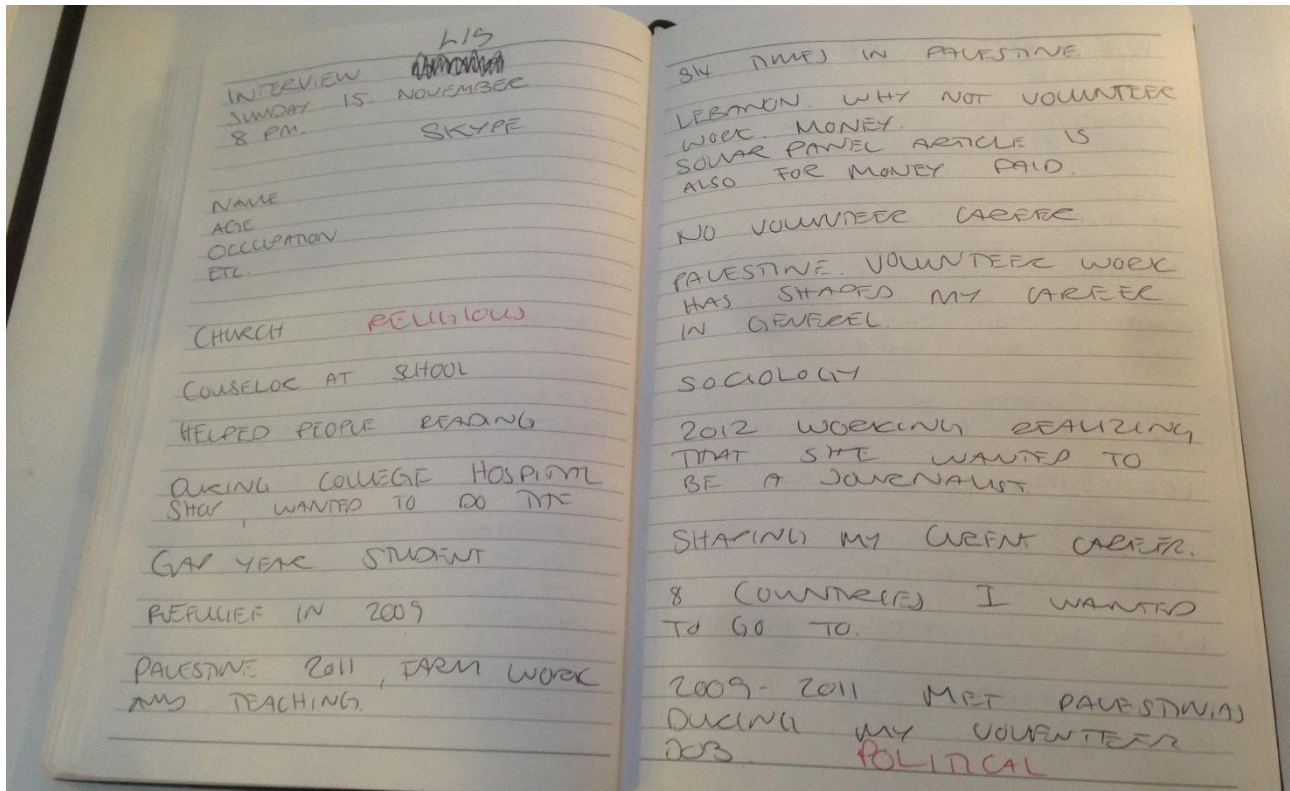 LIS
INTERVIEW
SUNDAY 15 NOVEMBER
8 PM. SKYPE
NAME
AGE
OCCUPATION
ETC.
CHURCH RELIGIOUS
COUSELOR AT SCHOOL
HELPED PEOPLE READING
DURING COLLEGE HOSPITAL
, WANTED TO DO
GAP YEAR STUDENT
REFUGIEE IN 2009
PALESTINE 2011, FARM WORK
AND TEACHING.
TIMES IN PALESTINE
LEBANON. WHY NOT VOLUNTEER
WORK. MONEY.
SOLAR PANEL ARTICLE IS
ALSO FOR MONEY PAID.
NO VOLUNTEER CAREER
PALESTINE. VOLUNTEER WORK
HAS SHAPED MY CAREER
IN GENEREL
SOCIOLOGY
2012 WORKING REALIZING
THAT SHE WANTED TO
BE A JOURNALIST
SHAPING MY CURENT CAREER.
8 COUNTRIES I WANTED
TO GO TO.
2009-2011 MET PALESTINIAS
DURING MY VOLUNTEER
JOB POLITICAL